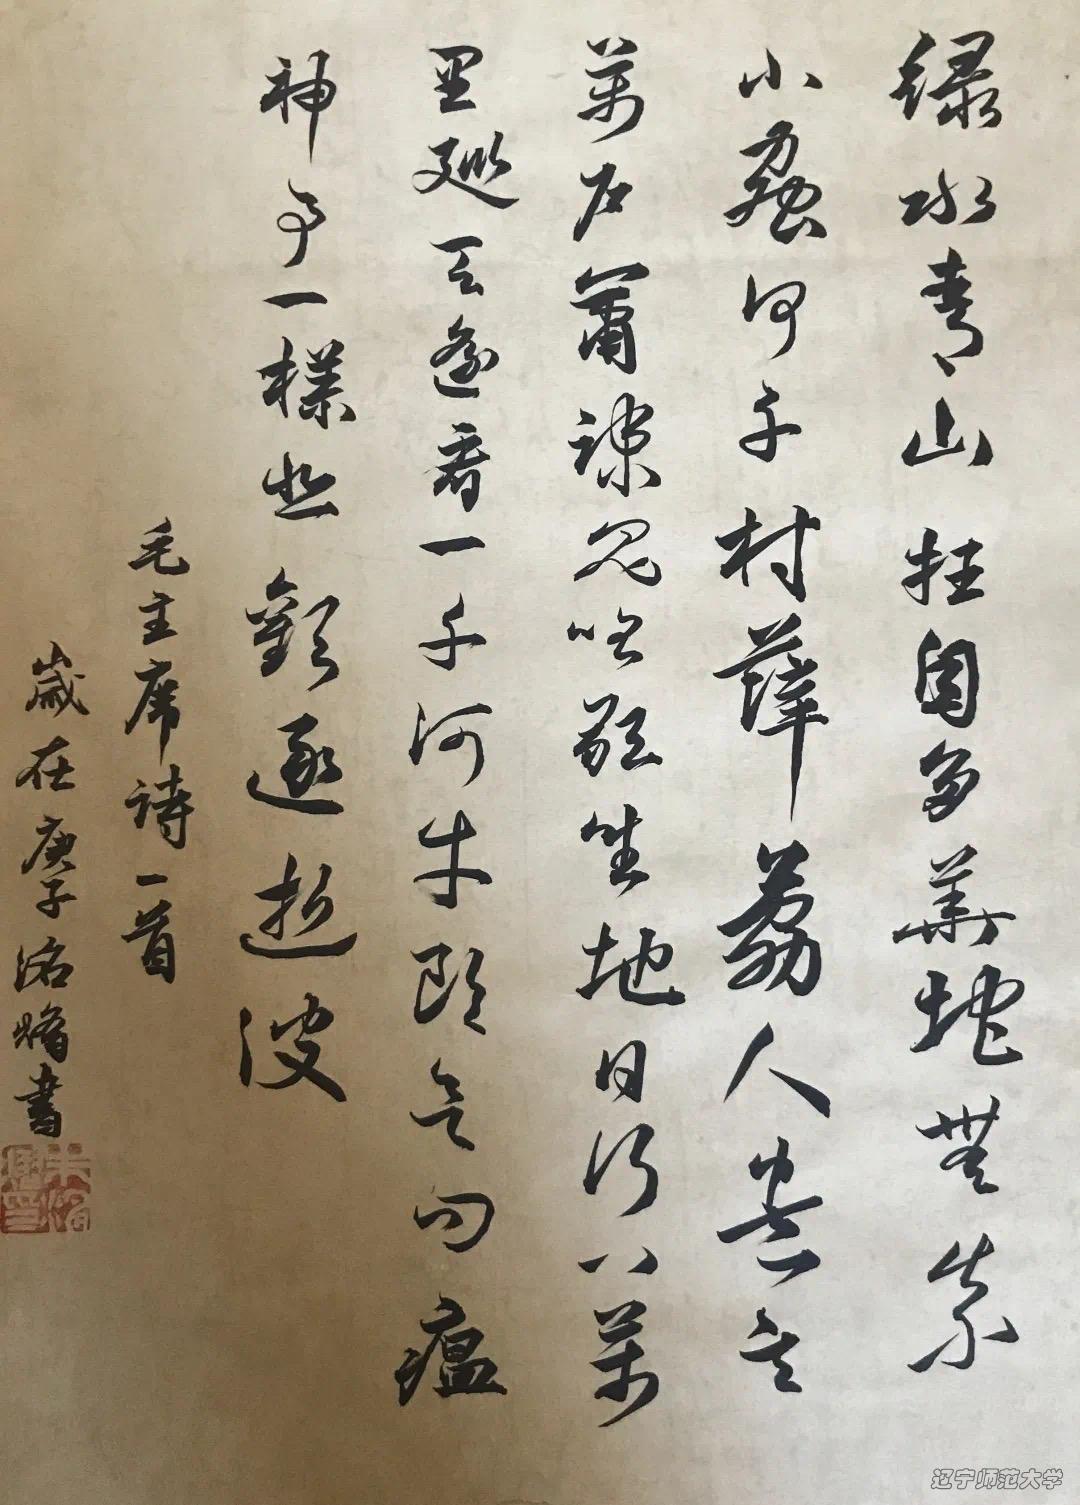 綠水青山枉自多華佗無奈
小蟲何千村薜荔人遺矢
萬戶蕭疏鬼唱歌坐地日行八萬
里巡天遙看一千河牛郎欲問瘟
神事一樣悲歡逐逝波
毛主席诗一首
歲在庚子書
辽宁师范大学